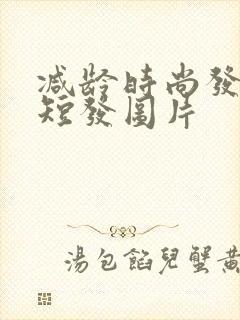 减龄時尚發
短發圖片
湯包餡兒蟹黃